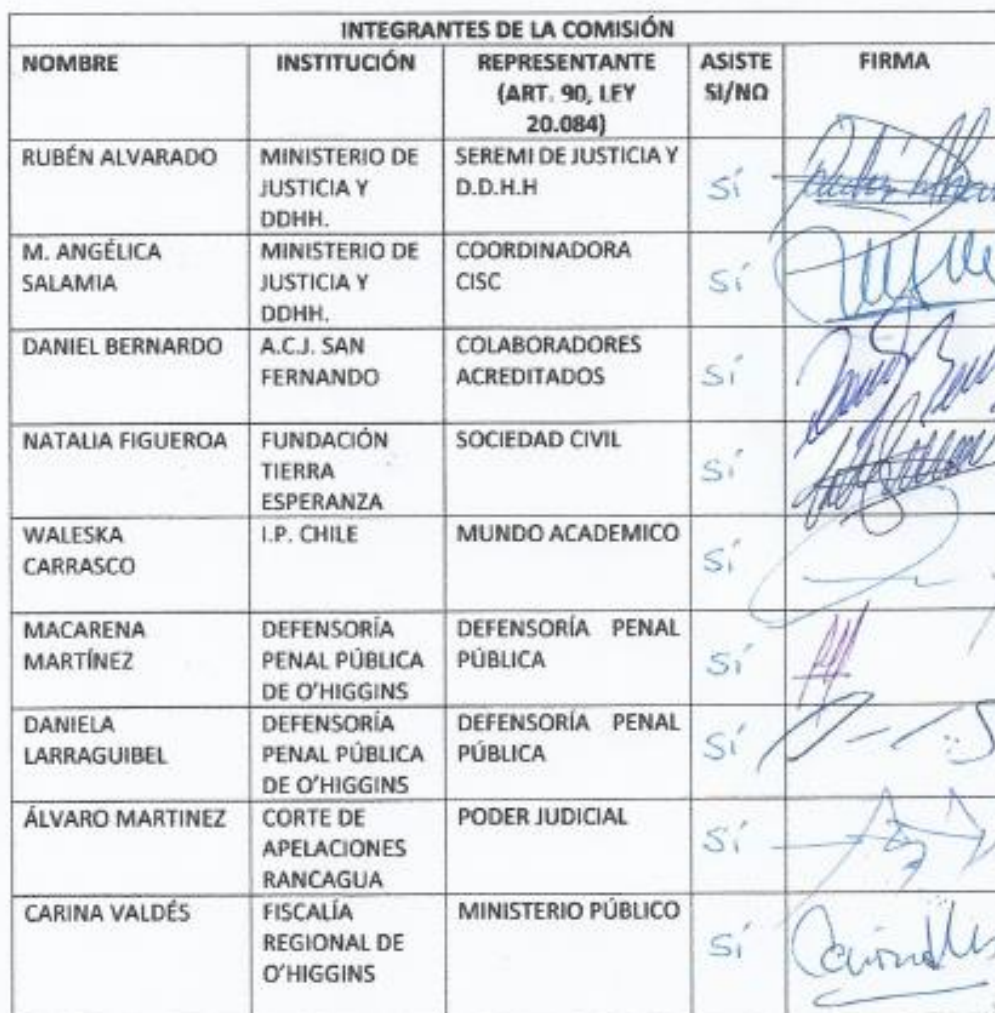 INTEGRANTES DE LA COMISIÓN
NOMBRE INSTITUCIÓN REPRESENTANTE (ART. 90, LEY 20.084) ASISTE SI/NO FIRMA
RUBÉN ALVARADO MINISTERIO DE JUSTICIA Y DDHH. SEREMI DE JUSTICIA Y D.D.H.H SÍ
M. ANGÉLICA SALAMIA MINISTERIO DE JUSTICIA Y DDHH. COORDINADORA CISC SÍ
DANIEL BERNARDO A.C.J. SAN FERNANDO COLABORADORES ACREDITADOS SÍ
NATALIA FIGUEROA FUNDACIÓN TIERRA ESPERANZA SOCIEDAD CIVIL SÍ
WALESKA CARRASCO I.P. CHILE MUNDO ACADEMICO SÍ
MACARENA MARTÍNEZ DEFENSORÍA PENAL PÚBLICA DE O'HIGGINS DEFENSORÍA PENAL PÚBLICA SÍ
DANIELA LARRAGUIBEL DEFENSORÍA PENAL PÚBLICA DE O'HIGGINS DEFENSORÍA PENAL PÚBLICA SÍ
ÁLVARO MARTINEZ CORTE DE APELACIONES RANCAGUA PODER JUDICIAL SÍ
CARINA VALDÉS FISCALÍA REGIONAL DE O'HIGGINS MINISTERIO PÚBLICO SÍ